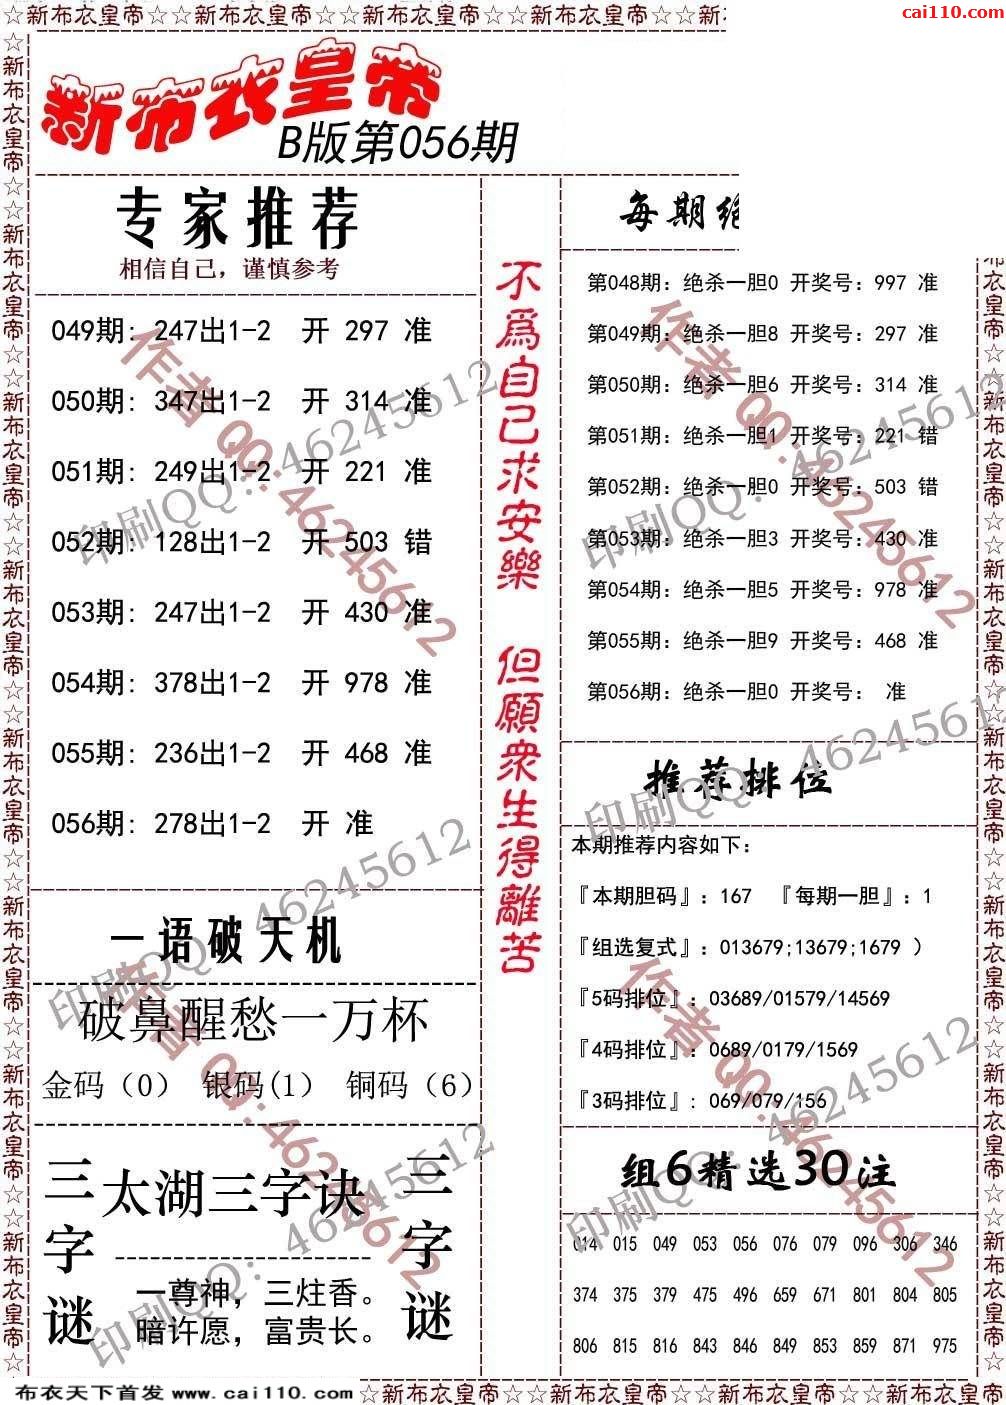 ☆新布衣皇帝☆☆新布衣皇帝☆☆新布衣皇帝☆☆新布衣皇帝☆☆新布衣皇帝☆☆新
cai110.com
新布衣皇帝
B版第056期
专家推荐
相信自己，谨慎参考
049期: 247出1-2 开 297 准
050期: 347出1-2 开 314 准
051期: 249出1-2 开 221 准
052期: 128出1-2 开 503 错
053期: 247出1-2 开 430 准
054期: 378出1-2 开 978 准
055期: 236出1-2 开 468 准
056期: 278出1-2 开 准
一语破天机
破鼻醒愁一万杯
金码（0） 银码(1） 铜码（6）
三字谜
太湖三字诀
一尊神，三炷香。
暗许愿，富贵长。
三字谜
不爲自己求安樂 但願衆生得離苦
每期绝
第048期：绝杀一胆0 开奖号：997 准
第049期：绝杀一胆8 开奖号：297 准
第050期：绝杀一胆6 开奖号：314 准
第051期：绝杀一胆1 开奖号：221 错
第052期：绝杀一胆0 开奖号：503 错
第053期：绝杀一胆3 开奖号：430 准
第054期：绝杀一胆5 开奖号：978 准
第055期：绝杀一胆9 开奖号：468 准
第056期：绝杀一胆0 开奖号： 准
推荐排位
本期推荐内容如下：
『本期胆码』：167 『每期一胆』：1
『组选复式』：013679;13679;1679 ）
『5码排位』：03689/01579/14569
『4码排位』：0689/0179/1569
『3码排位』: 069/079/156
组6精选30注
014 015 049 053 056 076 079 096 306 346
374 375 379 475 496 659 671 801 804 805
806 815 816 843 846 849 853 859 871 975
作者 QQ:46245612
印刷QQ: 46245612
作者 QQ:46245612
印刷QQ: 46245612
印刷QQ: 46245612
印刷QQ: 46245612
作者 QQ:46245612
印刷QQ: 46245612
作者 QQ:46245612
印刷QQ: 46245612
布衣天下首发 www.cai110.com ☆新布衣皇帝☆☆新布衣皇帝☆☆新布衣皇帝☆☆新布衣皇帝☆